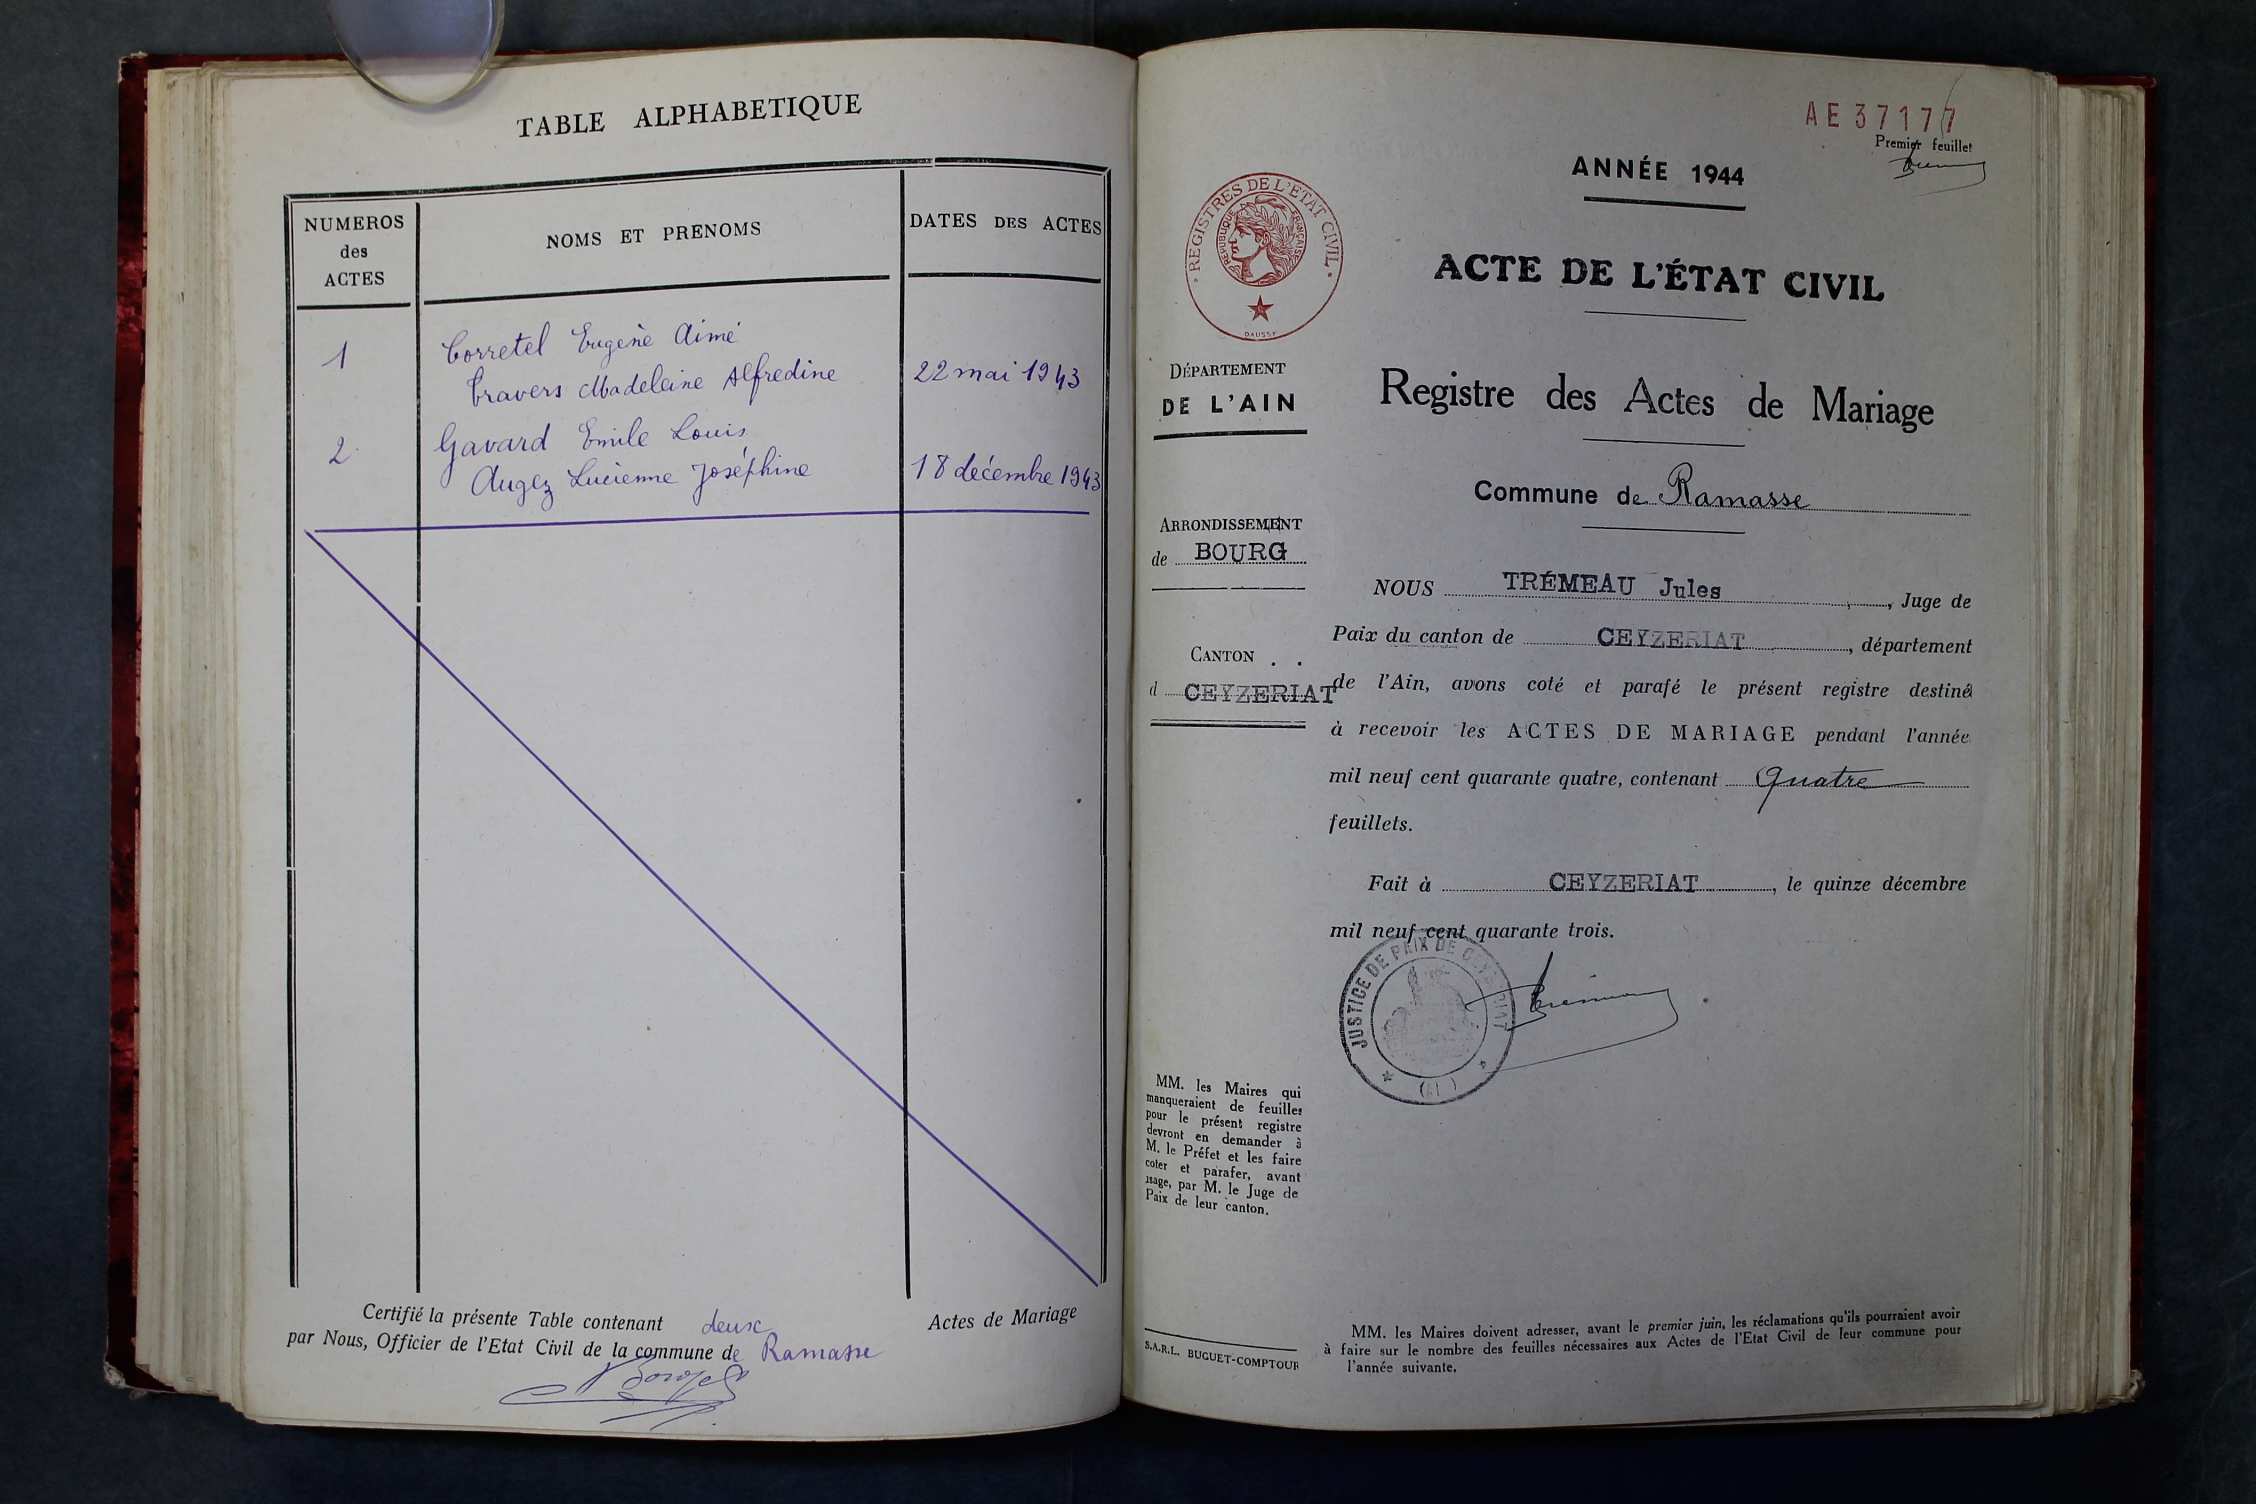 TABLE ALPHABETIQUE
NUMEROS
des
ACTES
NOMS ET PRENOMS
DATES DES ACTES
1
Corretel Eugène Aimé
Travers Madeleine Alfredine
22 mai 1943
2
Gavard Emile Louis
Augez Lucienne Joséphine
18 décembre 1943
Certifié la présente Table contenant deux Actes de Mariage
par Nous, Officier de l'Etat Civil de la commune de Ramasse
AE 37177
Premier feuillet
ANNÉE 1944
REGISTRES DE L'ETAT CIVIL
REPUBLIQUE FRANÇAISE
DAUSSY
ACTE DE L'ÉTAT CIVIL
DÉPARTEMENT
DE L'AIN
Registre des Actes de Mariage
Commune de Ramasse
ARRONDISSEMENT
de BOURG
CANTON
d CEYZERIAT
NOUS TRÉMEAU Jules, Juge de
Paix du canton de CEYZERIAT, département
de l'Ain, avons coté et parafé le présent registre destiné
à recevoir les ACTES DE MARIAGE pendant l'année
mil neuf cent quarante quatre, contenant Quatre
feuillets.
Fait à CEYZERIAT, le quinze décembre
mil neuf cent quarante trois.
JUSTICE DE PAIX DE CEYZERIAT
MM. les Maires qui
manqueraient de feuilles
pour le présent registre
devront en demander à
M. le Préfet et les faire
coter et parafer, avant
usage, par M. le Juge de
Paix de leur canton.
S.A.R.L. BUGUET-COMPTOUR
MM. les Maires doivent adresser, avant le premier juin, les réclamations qu'ils pourraient avoir
à faire sur le nombre des feuilles nécessaires aux Actes de l'Etat Civil de leur commune pour
l'année suivante.